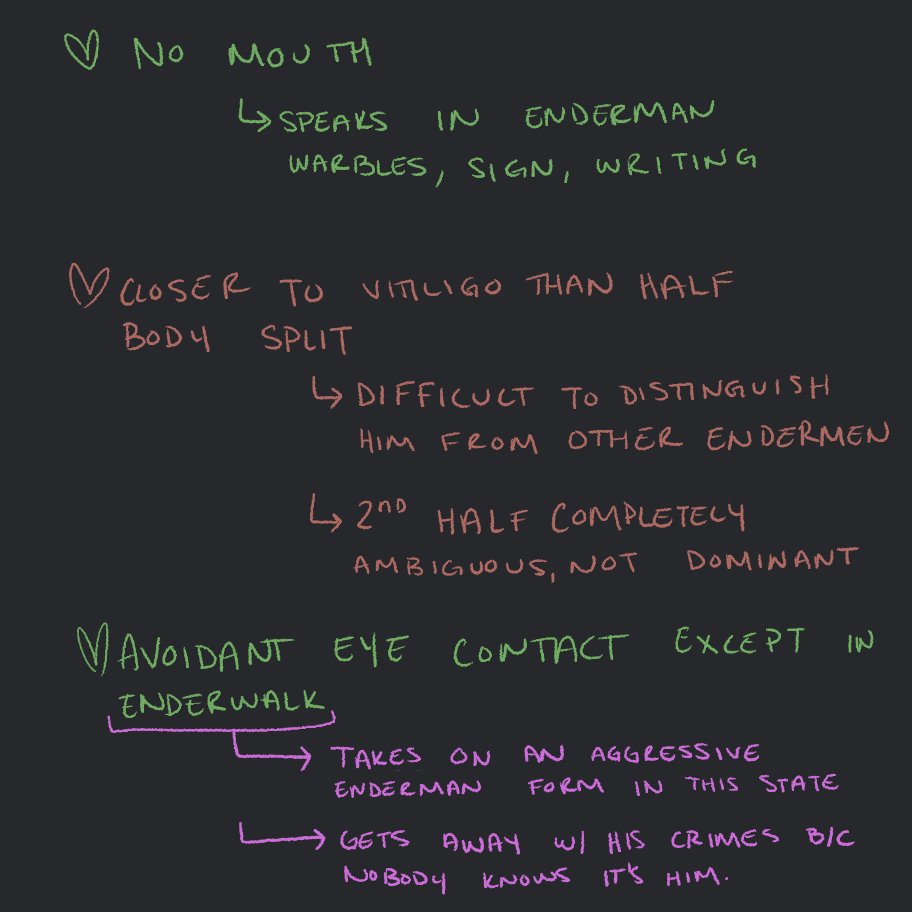 ♡ NO MOUTH
↳ SPEAKS IN ENDERMAN
WARBLES, SIGN, WRITING
♡ CLOSER TO VITILIGO THAN HALF
BODY SPLIT
↳ DIFFICULT TO DISTINGUISH
HIM FROM OTHER ENDERMEN
↳ 2ND HALF COMPLETELY
AMBIGUOUS, NOT DOMINANT
♡ AVOIDANT EYE CONTACT EXCEPT IN
ENDERWALK
↳ TAKES ON AN AGGRESSIVE
ENDERMAN FORM IN THIS STATE
↳ GETS AWAY W/ HIS CRIMES B/C
NOBODY KNOWS IT'S HIM.